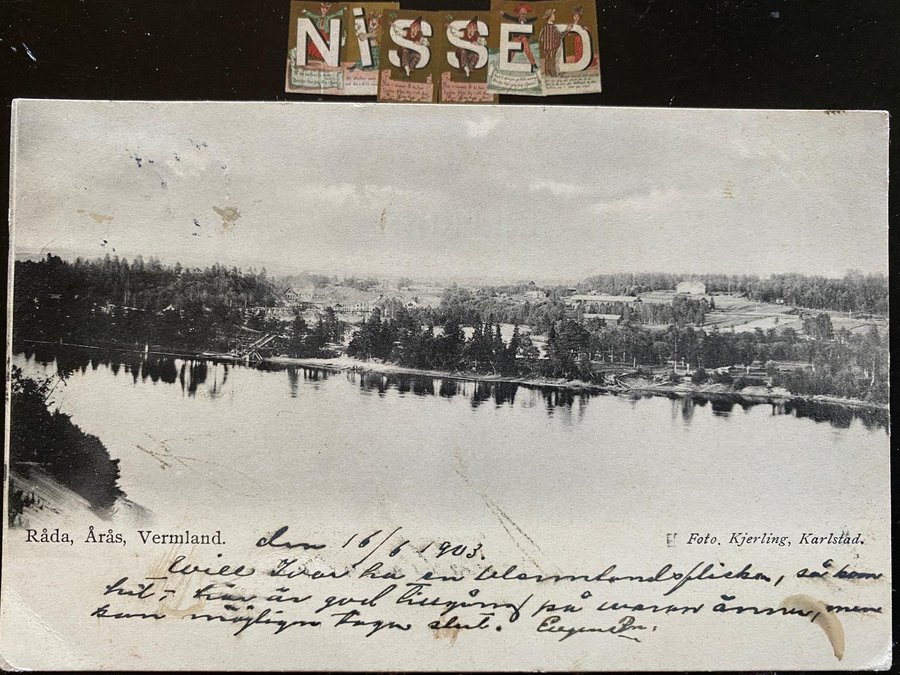 NiSSED
Råda, Årås, Vermland.
Foto. Kjerling, Karlstad.
den 16/6 1903.
Will Ivar ha en Wermlandsflicka, så kom
hit, - här är god tillgång på waran ännu, men
kan möjligen taga slut.